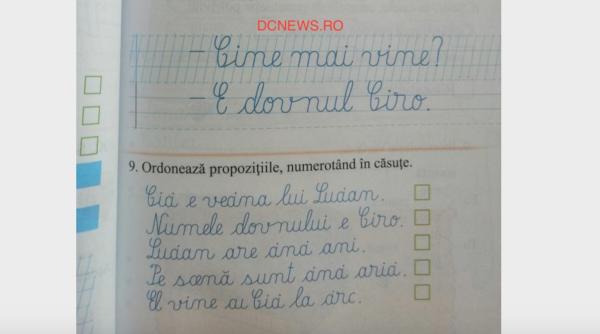 DCNEWS.RO
– Cine mai vine?
– E clovnul Ciro.
9. Ordonează propozițiile, numerotând în căsuțe.
Cici e vecina lui Lucian.
Numele clovnului e Ciro.
Lucian are cinci ani.
Pe scenă sunt cinci arici.
El vine cu Cici la circ.